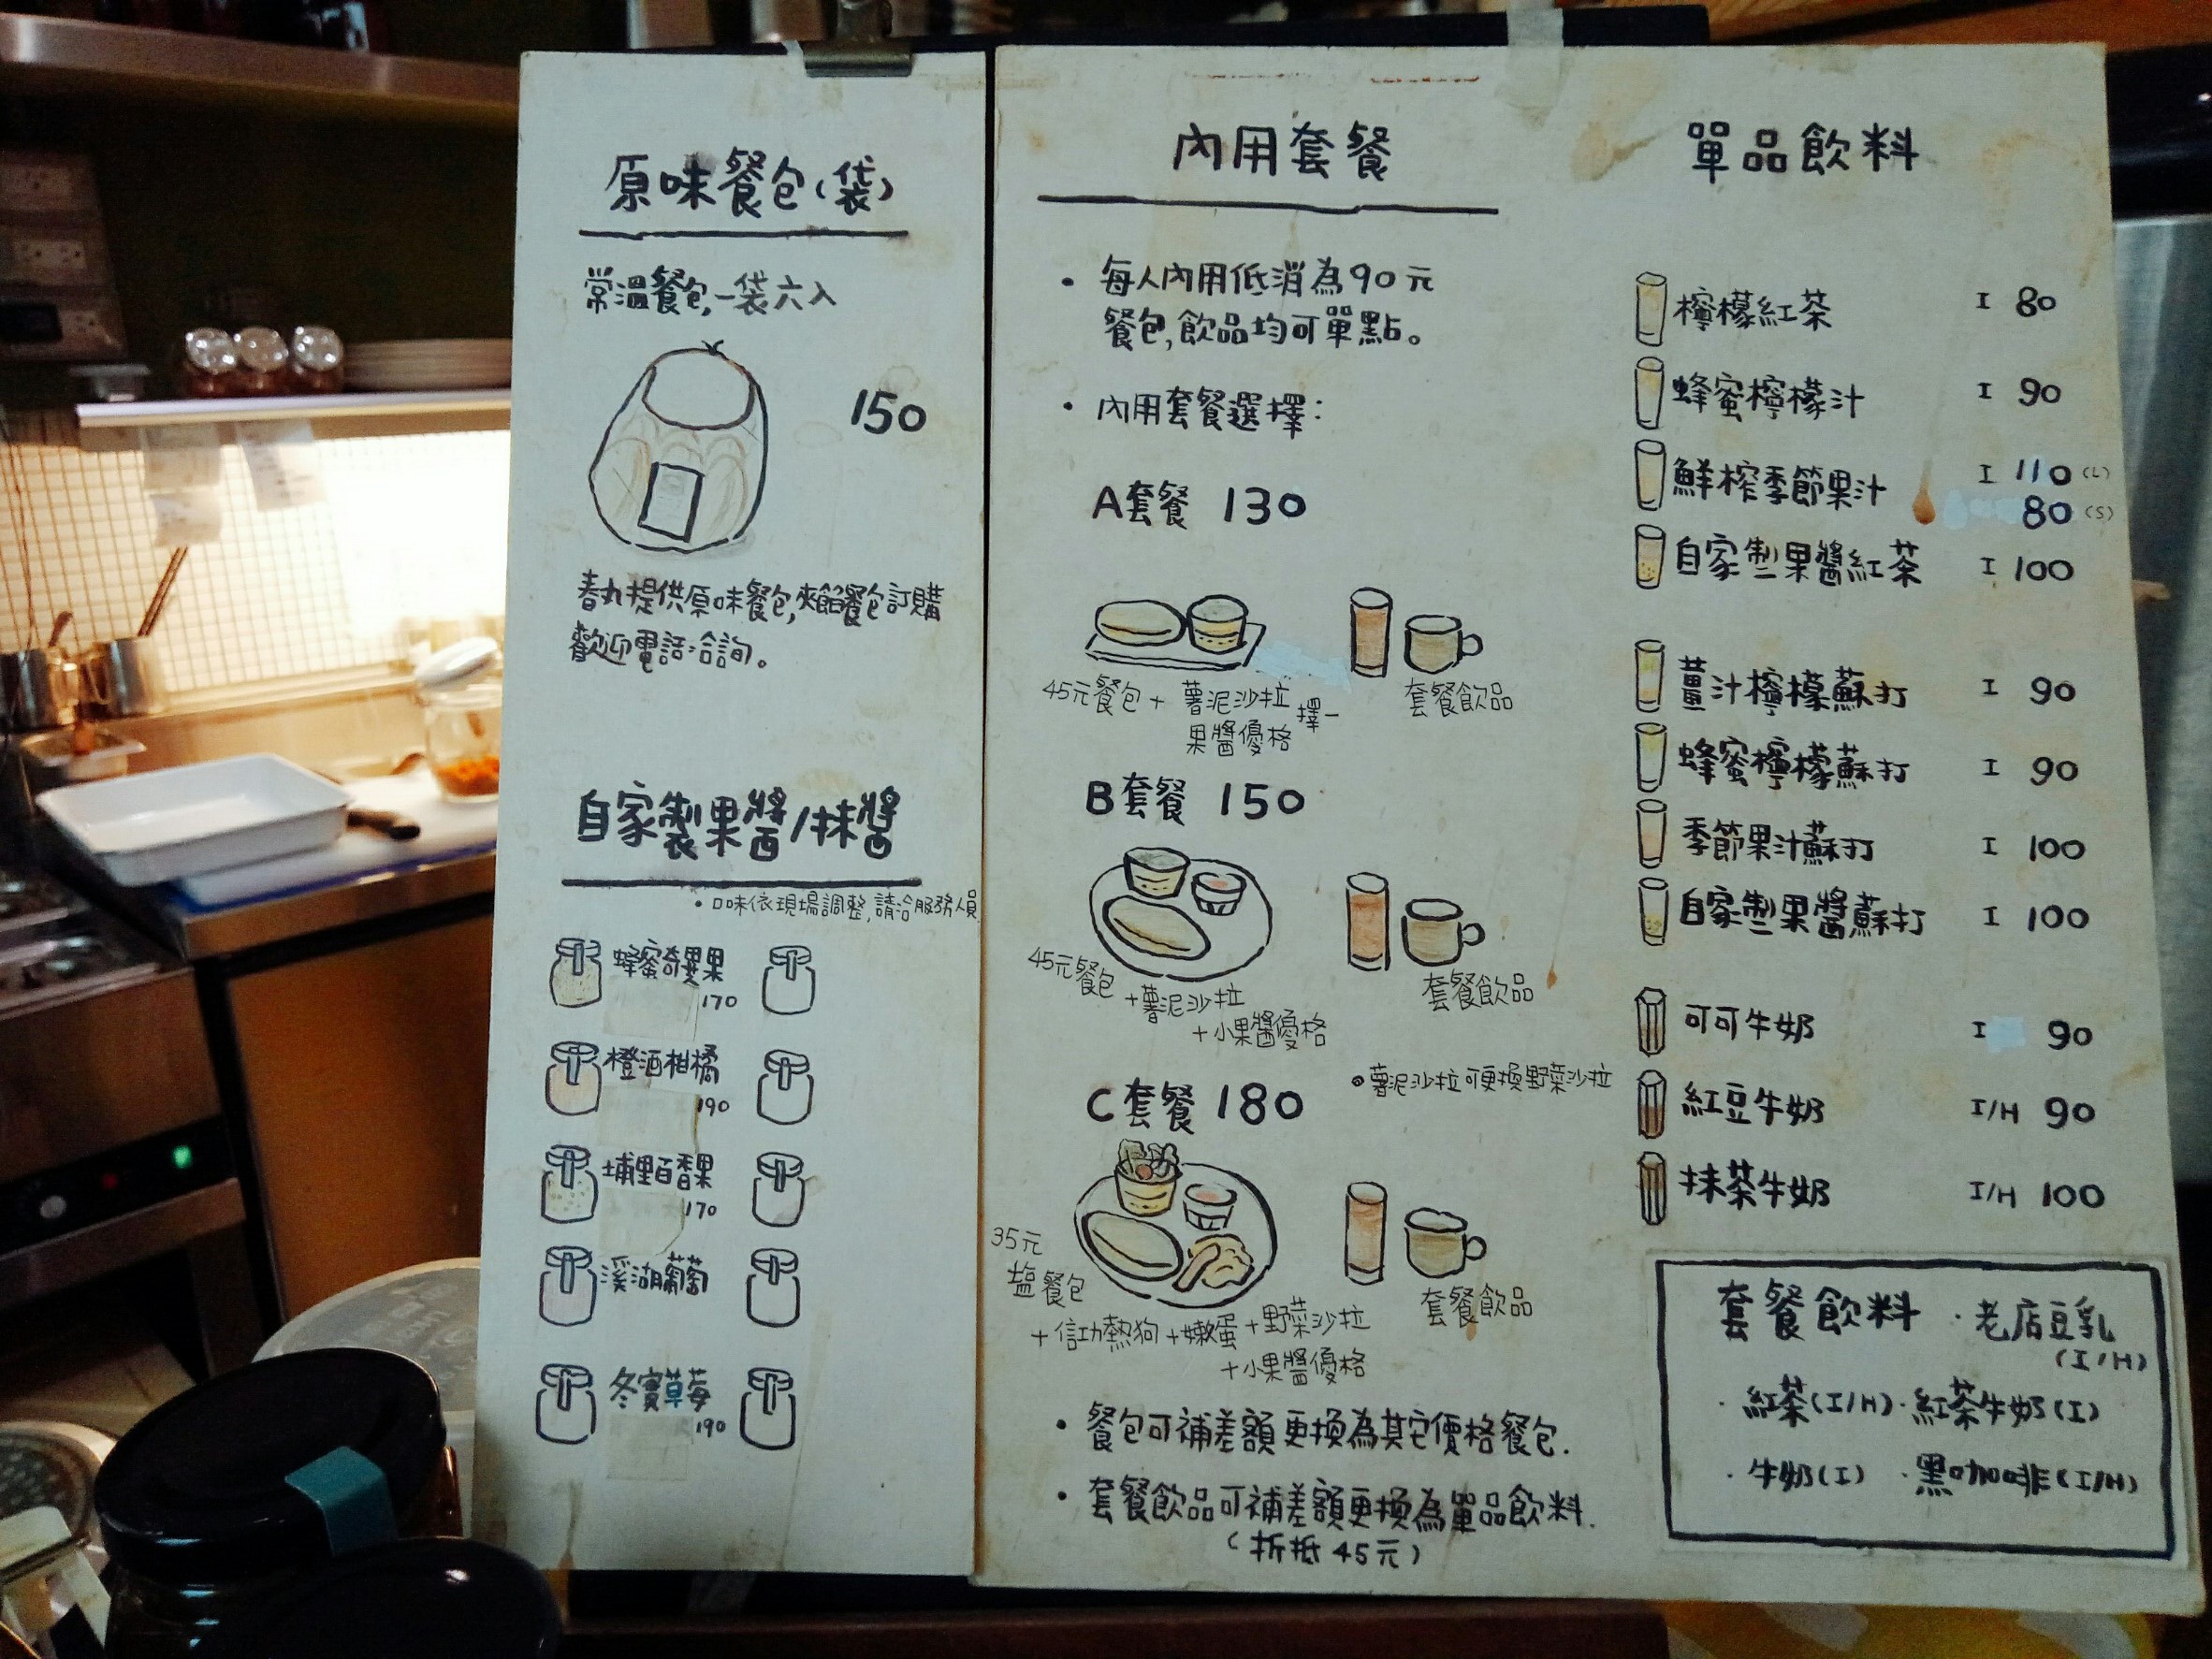 原味餐包(袋)
常溫餐包,一袋六入
150
春丸提供原味餐包,夾餡餐包訂購
歡迎電話洽詢。
自家製果醬/抹醬
・口味依現場調整,請洽服務人員
蜂蜜奇異果
170
橙酒柑橘
190
埔里百香果
170
溪湖葡萄
冬寶草莓
190
內用套餐
・每人內用低消為90元
餐包,飲品均可單點。
・內用套餐選擇:
A套餐 130
45元餐包+ 薯泥沙拉 擇一
果醬優格
套餐飲品
B套餐 150
45元餐包
+薯泥沙拉
+小果醬優格
套餐飲品
薯泥沙拉可更換野菜沙拉
C套餐 180
35元
塩餐包
+信功熱狗+嫩蛋+野菜沙拉
+小果醬優格
套餐飲品
・餐包可補差額更換為其它價格餐包.
・套餐飲品可補差額更換為單品飲料.
(折抵45元)
單品飲料
檸檬紅茶 I 80
蜂蜜檸檬汁 I 90
鮮榨季節果汁 I 110(L)
80(S)
自家製果醬紅茶 I 100
薑汁檸檬蘇打 I 90
蜂蜜檸檬蘇打 I 90
季節果汁蘇打 I 100
自家製果醬蘇打 I 100
可可牛奶 I 90
紅豆牛奶 I/H 90
抹茶牛奶 I/H 100
套餐飲料 ・老店豆乳
(I/H)
・紅茶(I/H)・紅茶牛奶(I)
・牛奶(I) ・黑咖啡(I/H)